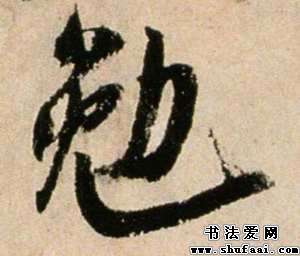 勉
书法爱网
www.shufaai.com